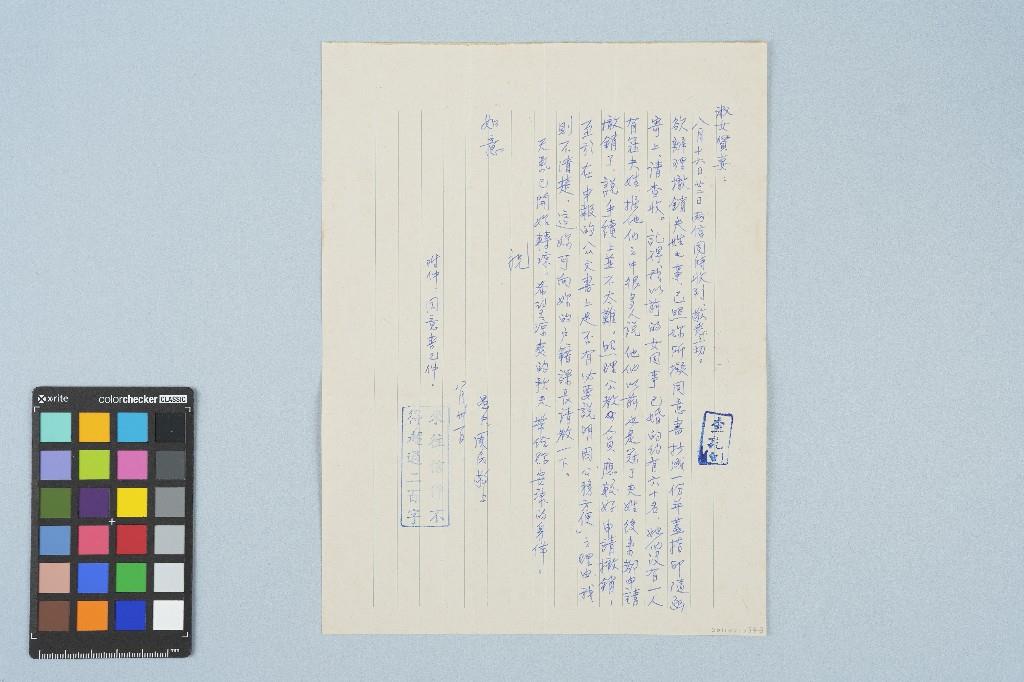 淑女賢妻：
八月十六日廿二日兩信同時收到，敬悉一切。
欲辦理撤銷夫姓之事，已照妳所擬同意書抄成一份并蓋指印隨函
寄上，請查收。記得我以前的女同事已婚的約有六十名，她們沒有一人
有冠夫姓，據他們之中很多人說，他們以前也是冠了夫姓，後來都申請
撤銷了，說手續上並不太難，照理公教人員應較好申請撤銷，
至於在申報的公文書上是否有必要說明「因公務方便」之理由我
則不清楚，這妳可向妳的戶籍課長請教一下。
天氣已開始轉涼，希望涼爽的秋天帶給
祝
如意
八月卅一日
附件：同意書乙件。
查訖
來往信件不
得超過二百字
xrite
colorchecker CLASSIC
mm